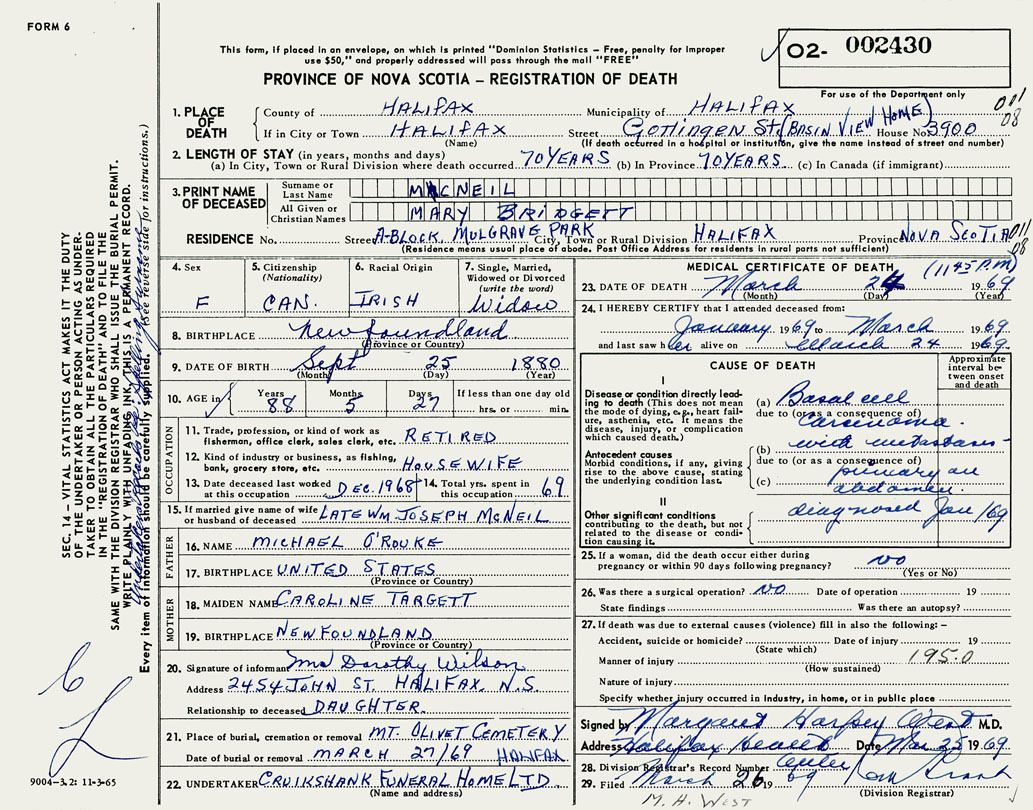 FORM 6
This form, if placed in an envelope, on which is printed "Dominion Statistics – Free, penalty for improper
use $50," and properly addressed will pass through the mail "FREE"
O2- 002430
PROVINCE OF NOVA SCOTIA – REGISTRATION OF DEATH
For use of the Department only
1. PLACE OF DEATH
County of HALIFAX Municipality of HALIFAX 001
If in City or Town HALIFAX Street Gottingen St (BASIN VIEW HOME) House No. 3900 08
(Name) (If death occurred in a hospital or institution, give the name instead of street and number)
2. LENGTH OF STAY (in years, months and days)
(a) In City, Town or Rural Division where death occurred 70 YEARS (b) In Province 70 YEARS (c) In Canada (if immigrant)
3. PRINT NAME OF DECEASED
Surname or Last Name MCNEIL
All Given or Christian Names MARY BRIDGETT
RESIDENCE No. Street A-BLOCK, MULGRAVE PARK City, Town or Rural Division HALIFAX Province NOVA SCOTIA 011
(Residence means usual place of abode. Post Office Address for residents in rural parts not sufficient) 08
4. Sex F
5. Citizenship (Nationality) CAN.
6. Racial Origin IRISH
7. Single, Married, Widowed or Divorced (write the word) Widow
8. BIRTHPLACE Newfoundland
(Province or Country)
9. DATE OF BIRTH Sept 25 1880
(Month) (Day) (Year)
10. AGE in Years 88 Months 5 Days 27 If less than one day old hrs. or min.
OCCUPATION
11. Trade, profession, or kind of work as
fisherman, office clerk, sales clerk, etc. RETIRED
12. Kind of industry or business, as fishing,
bank, grocery store, etc. HOUSEWIFE
13. Date deceased last worked at this occupation DEC. 1968
14. Total yrs. spent in this occupation 69
15. If married give name of wife
or husband of deceased LATE WM. JOSEPH MCNEIL
FATHER
16. NAME MICHAEL O'ROUKE
17. BIRTHPLACE UNITED STATES
(Province or Country)
MOTHER
18. MAIDEN NAME CAROLINE TARGETT
19. BIRTHPLACE NEWFOUNDLAND
(Province or Country)
20. Signature of informant Mrs Dorothy Wilson
Address 2454 JOHN ST. HALIFAX, N.S.
Relationship to deceased DAUGHTER.
21. Place of burial, cremation or removal MT. OLIVET CEMETERY
Date of burial or removal MARCH 27/69 HALIFAX
22. UNDERTAKER CRUIKSHANK FUNERAL HOME LTD.
(Name and address)
MEDICAL CERTIFICATE OF DEATH (1145 P.M)
23. DATE OF DEATH March 24 1969
(Month) (Day) (Year)
24. I HEREBY CERTIFY that I attended deceased from:
January 1969 to March 1969
and last saw her alive on March 24 1969.
CAUSE OF DEATH
Approximate interval between onset and death
I
Disease or condition directly leading to death (This does not mean the mode of dying, e.g., heart failure, asthenia, etc. It means the disease, injury, or complication which caused death.)
(a) Basal cell
due to (or as a consequence of)
Carcinoma.
Antecedent causes
Morbid conditions, if any, giving rise to the above cause, stating the underlying condition last.
(b) with metastases -
due to (or as a consequence of)
primary on
(c) abdomen.
II
Other significant conditions
contributing to the death, but not related to the disease or condition causing it.
diagnosed Jan/69
25. If a woman, did the death occur either during
pregnancy or within 90 days following pregnancy? no
(Yes or No)
26. Was there a surgical operation? no Date of operation 19
State findings Was there an autopsy?
27. If death was due to external causes (violence) fill in also the following: –
Accident, suicide or homicide? Date of injury 19
(State which)
Manner of injury 195.0
(How sustained)
Nature of injury
Specify whether injury occurred in Industry, in home, or in public place
Signed by Margaret West M.D.
Address Halifax Health Date Mar 25 1969.
28. Division Registrar's Record Number Center
29. Filed March 26 1969
(Division Registrar)
M. H. WEST
SEC. 14 – VITAL STATISTICS ACT MAKES IT THE DUTY
OF THE UNDERTAKER OR PERSON ACTING AS UNDER-
TAKER TO OBTAIN ALL THE PARTICULARS REQUIRED
IN THE "REGISTRATION OF DEATH" AND TO FILE THE
SAME WITH THE DIVISION REGISTRAR WHO SHALL ISSUE THE BURIAL PERMIT.
WRITE PLAINLY WITH UNFADING INK, THIS IS A PERMANENT RECORD.
Every item of information should be carefully supplied. (See reverse side for instructions.)
9004–3.2: 11-3-65